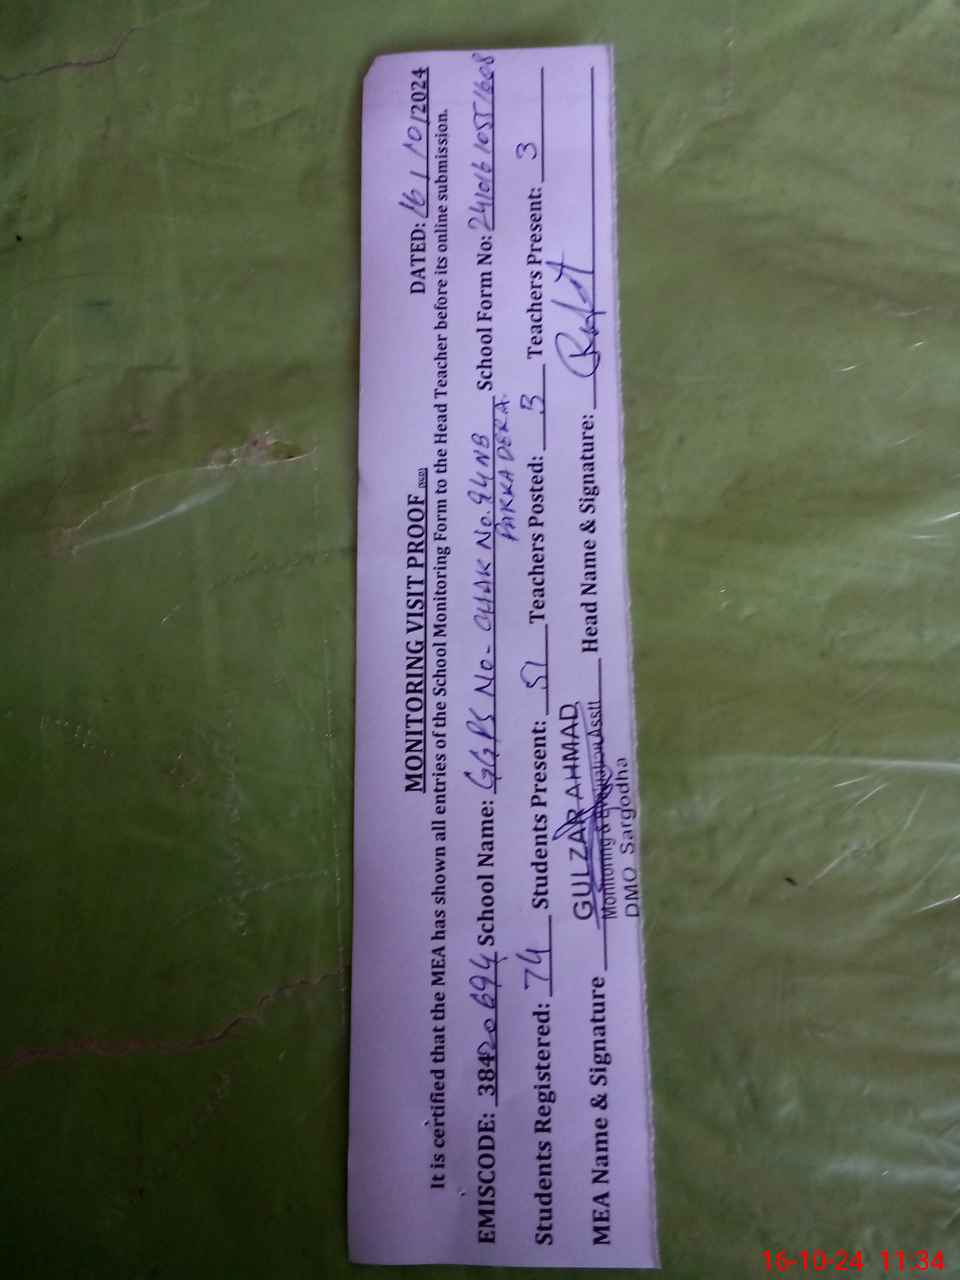 MONITORING VISIT PROOF
DATED: 16/10/2024
It is certified that the MEA has shown all entries of the School Monitoring Form to the Head Teacher before its online submission.
EMISCODE: 38420694 School Name: GGPS No- CHAK No. 94 NB School Form No: 24101610551608
PAKKA DERA.
Students Registered: 74 Students Present: 51 Teachers Posted: 3 Teachers Present: 3
GULZAR AHMAD
MEA Name & Signature Head Name & Signature:
Monitoring & Evaluation Asstt
DMO Sargodha
16-10-24 11:34